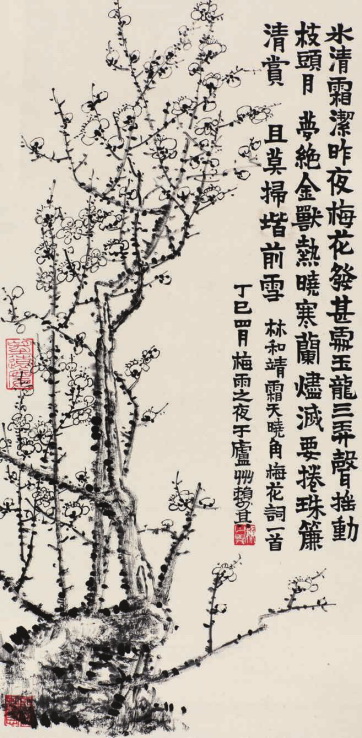 氷清霜潔昨夜梅花發甚處玉龍三弄聲搖動
枝頭月 夢絕金獸熱曉寒蘭燼滅要捲珠簾
清賞 且莫掃堦前雪 林和靖霜天曉角梅花詞一首
丁巳四月梅雨之夜于廬州賴少其